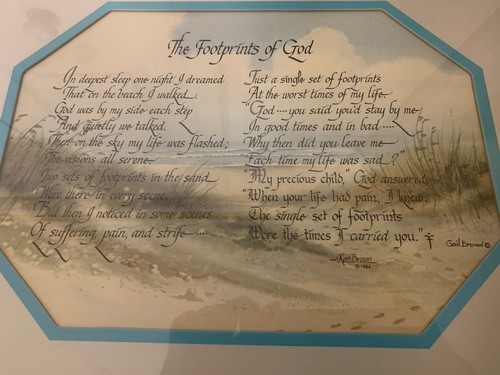 The Footprints of God
In deepest sleep one night I dreamed
That on the beach I walked
God was by my side each step
And quietly we talked.
Then on the sky my life was flashed;
The visions all serene.
Two sets of footprints in the sand
Were there in every scene.
But then I noticed in some scenes
Of suffering, pain, and strife ....
Just a single set of footprints
At the worst times of my life.
"God .... you said you'd stay by me
In good times and in bad ....
Why then did you leave me
Each time my life was sad?
"My precious child," God answered,
"When your life had pain, I knew;
The single set of footprints
Were the times I carried you."
Gail Brown ©
—Ken Brown
© 1984